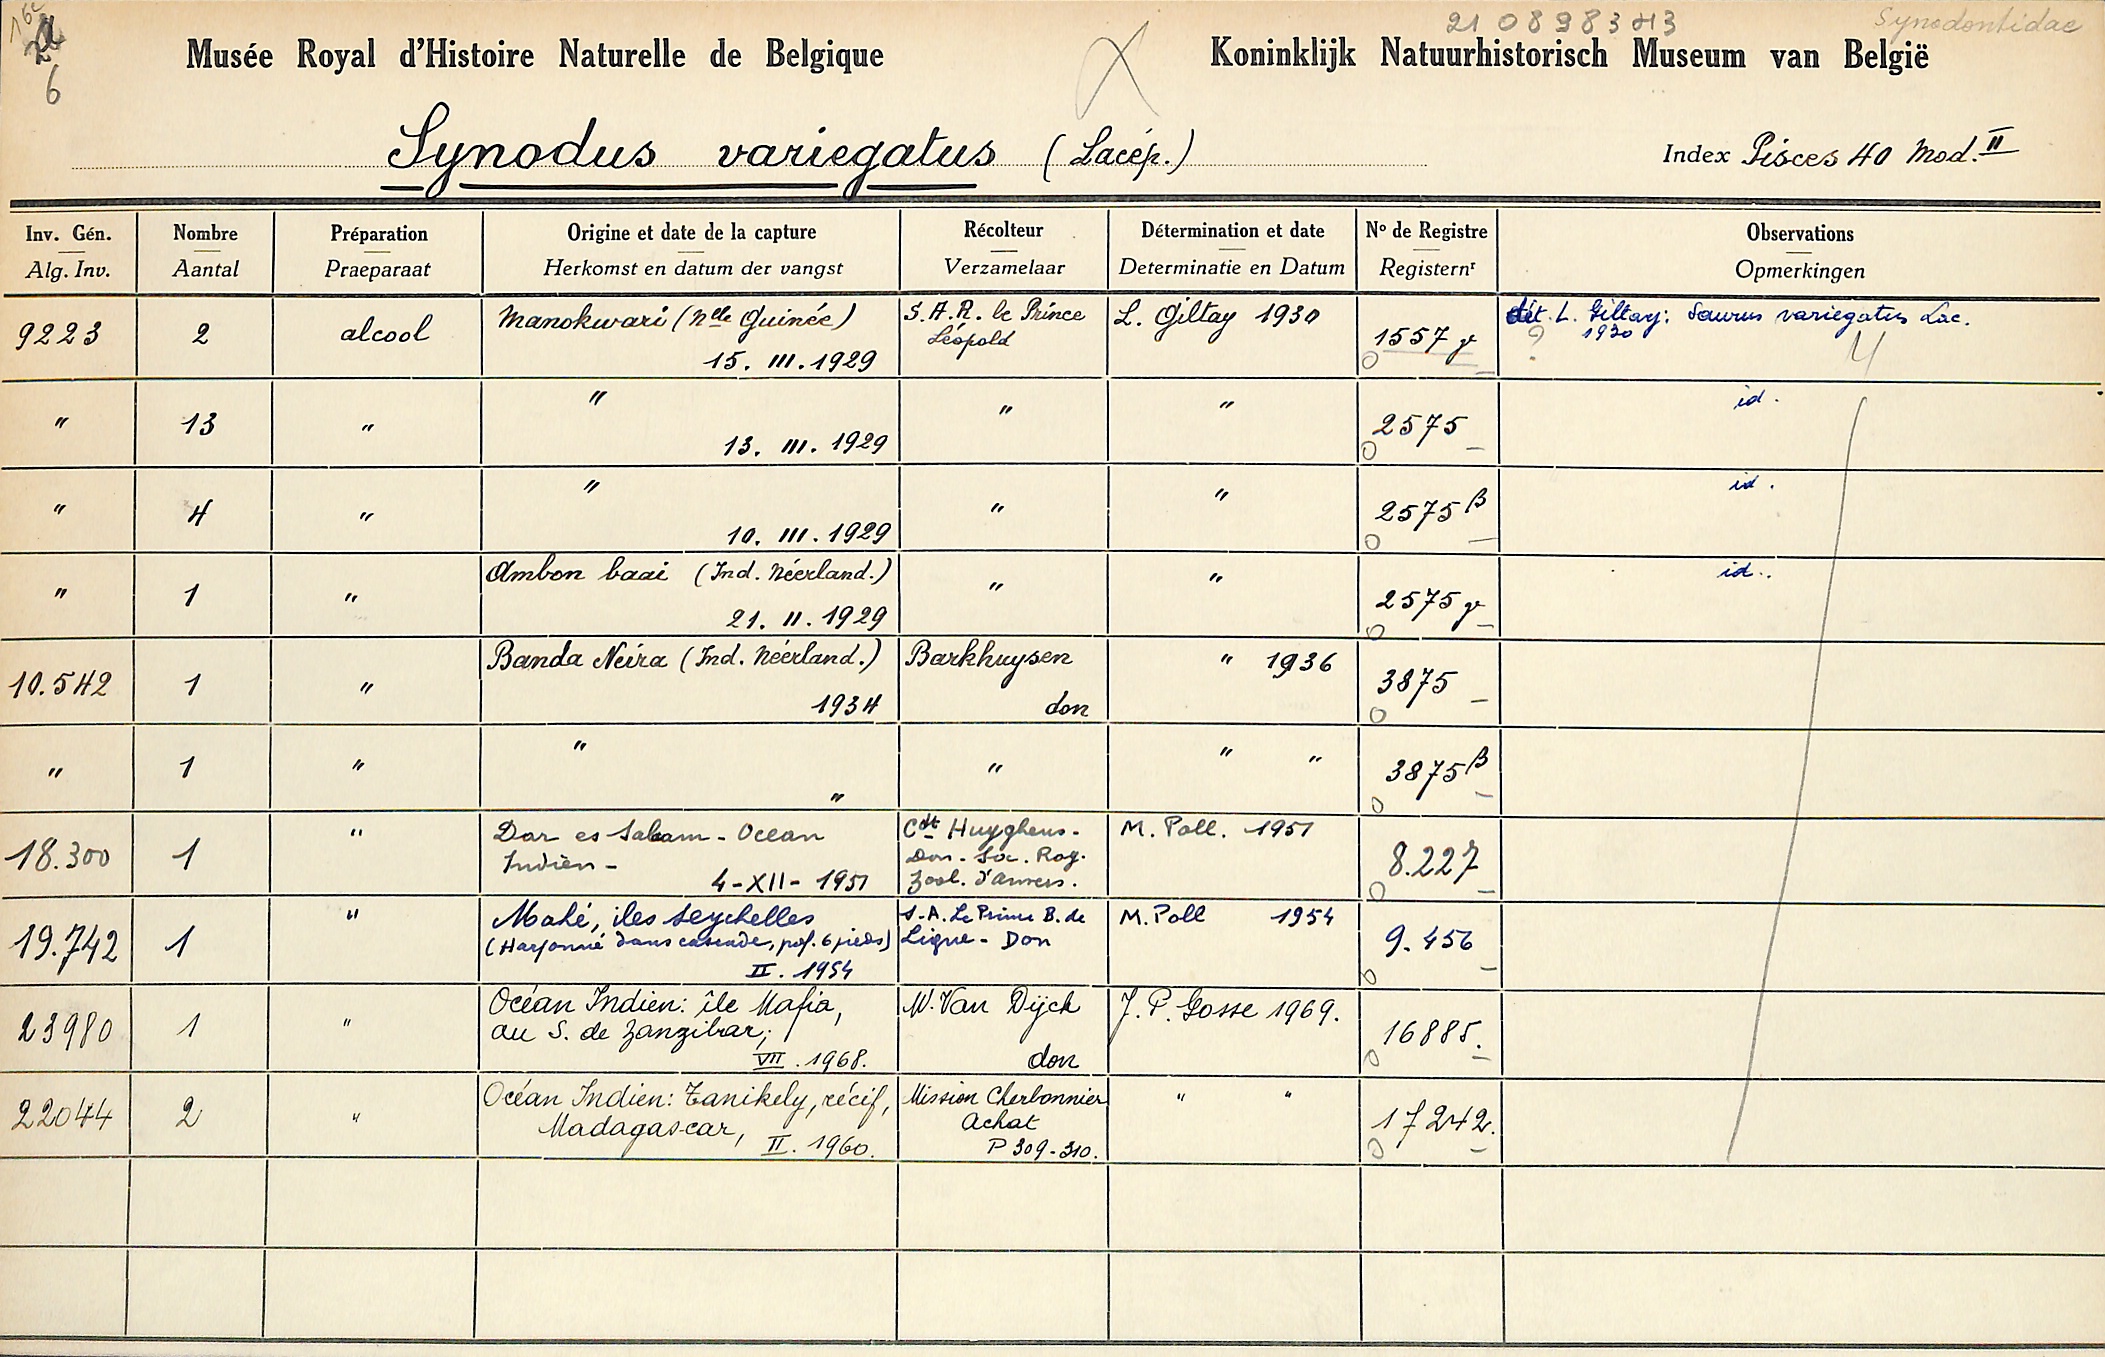 21 08983413
Synodontidae
6
Musée Royal d'Histoire Naturelle de Belgique
Koninklijk Natuurhistorisch Museum van België
Synodus variegatus (Lacép.)
Index Pisces 40 Mod. II
Inv. Gén. Nombre Préparation Origine et date de la capture Récolteur Détermination et date N° de Registre Observations
Alg. Inv. Aantal Praeparaat Herkomst en datum der vangst Verzamelaar Determinatie en Datum Registernr Opmerkingen
9223 2 alcool Manokwari (Nlle Guinée) 15. III. 1929 S.A.R. le Prince Léopold L. Giltay 1930 1557 γ dét. L. Giltay: Saurus variegatus Lac. 1930 ?
" 13 " " 13. III. 1929 " " 2575 id.
" 4 " " 10. III. 1929 " " 2575 β id.
" 1 " Ambon baai (Ind. Néerland.) 21. II. 1929 " " 2575 γ id.
10.542 1 " Banda Neira (Ind. Néerland.) 1934 Barkhuysen don " 1936 3875
" 1 " " " " " " 3875 β
18.300 1 " Dar es Salaam - Ocean Indien - 4-XII-1951 Cdt Huyghens. Don. Soc. Roy. Zool. d'Anvers. M. Poll. 1951 8.227
19.742 1 " Mahé, iles Seychelles (Harponné dans cascade, prof. 6 pieds) II. 1954 S.A. Le Prince B. de Ligne - Don M. Poll 1954 9.456
23980 1 " Océan Indien: île Mafia, au S. de Zanzibar; VII. 1968. W. Van Dijck don J. P. Gosse 1969. 16885.
22044 2 " Océan Indien: Tanikely, récif, Madagascar, II. 1960. Mission Cherbonnier Achat P 309-310. " " 17242.